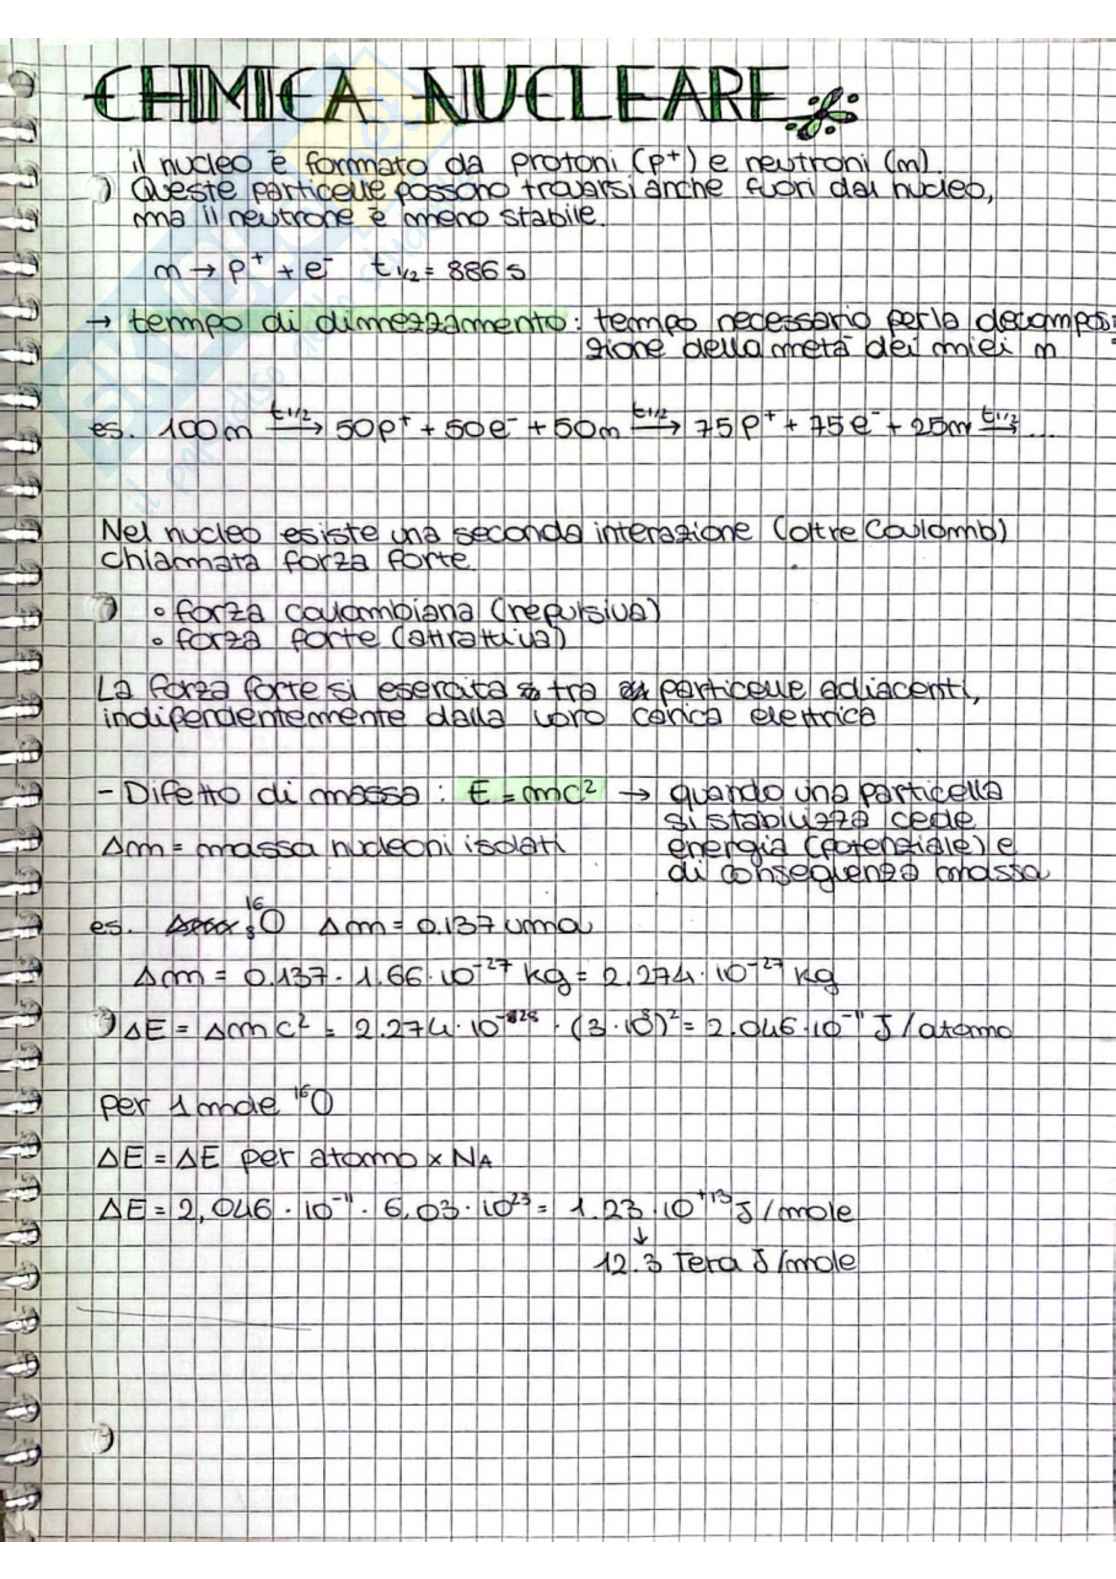 CHIMICA NUCLEARE
il nucleo è formato da protoni (p+) e neutroni (n)
Queste particelle possono trovarsi anche fuori dal nucleo,
ma il neutrone è meno stabile.
n → p⁺ + e⁻ t 1/2 = 886 s
→ tempo di dimezzamento: tempo necessario per la decomposi
zione della metà dei miei n
es. 100n t1/2→ 50p⁺ + 50e⁻ + 50n t1/2→ 75p⁺ + 75e⁻ + 25n t1/2→ ...
Nel nucleo esiste una seconda interazione (oltre Coulomb)
chiamata forza forte.
• forza coulombiana (repulsiva)
• forza forte (attrattiva)
La forza forte si esercita tra particelle adiacenti,
indipendentemente dalla loro carica elettrica
- Difetto di massa: E = mc² → quando una particella
si stabilizza cede
Δm = massa nucleoni isolati energia (potenziale) e
di conseguenza massa
es. ¹⁶₈O Δm = 0.137 uma
Δm = 0.137 · 1.66 · 10⁻²⁷ kg = 2.274 · 10⁻²⁷ kg
ΔE = Δm c² = 2.274 · 10⁻²⁸ · (3·10⁸)² = 2.046·10⁻¹¹ J/atomo
per 1 mole ¹⁶O
ΔE = ΔE per atomo x NA
ΔE = 2,046 · 10⁻¹¹ · 6,03 · 10²³ = 1.23 · 10⁺¹³ J/mole
↓
12.3 Tera J/mole